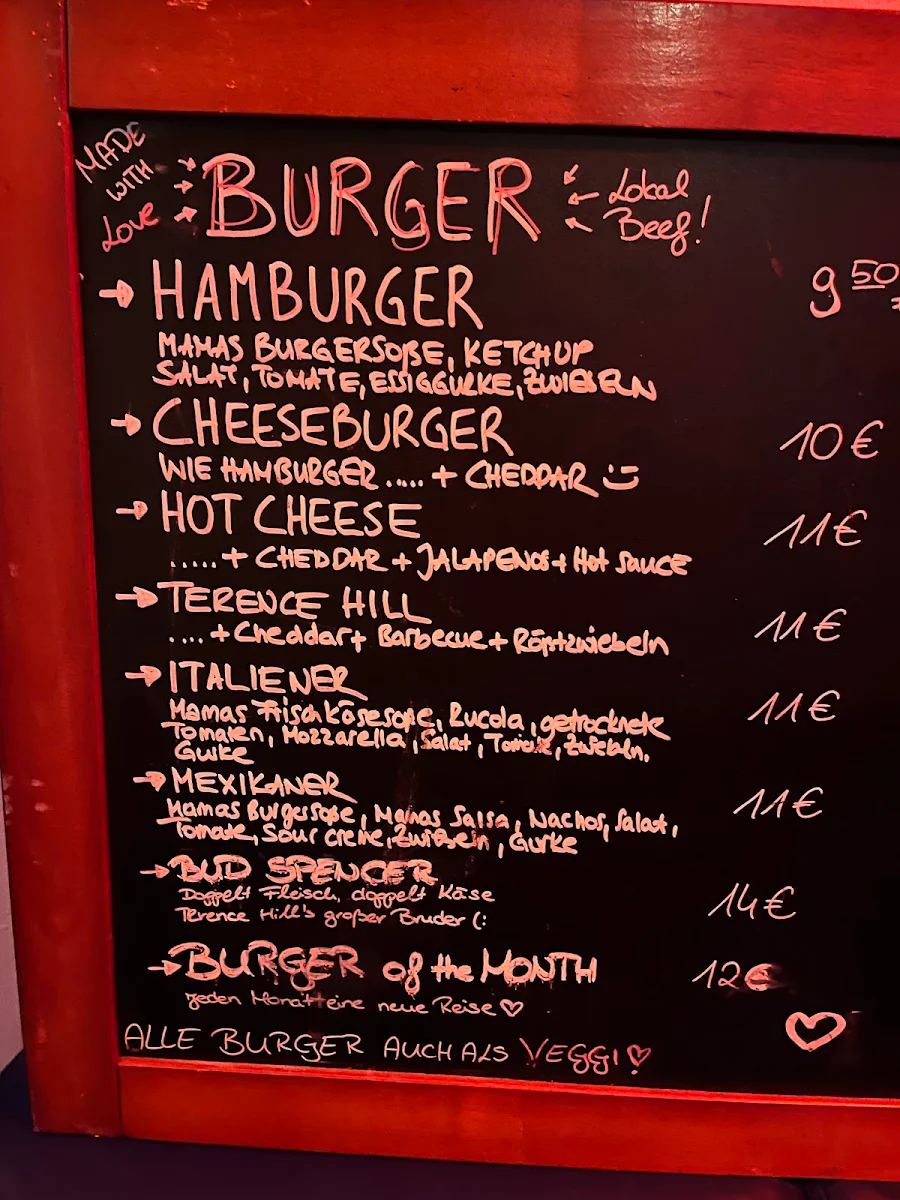 MADE WITH Love → BURGER ← Lokal Beef!
→ HAMBURGER 9 50
MAMAS BURGERSOßE, KETCHUP
SALAT, TOMATE, ESSIGGURKE, ZWIEBELN
→ CHEESEBURGER 10€
WIE HAMBURGER ..... + CHEDDAR :)
→ HOT CHEESE 11€
..... + CHEDDAR + JALAPENOS + Hot Sauce
→ TERENCE HILL 11€
.... + Cheddar + Barbecue + Röstzwiebeln
→ ITALIENER 11€
Mamas Frischkäsesoße, Rucola, getrocknete
Tomaten, Mozzarella, Salat, Tomate, Zwiebeln,
Gurke
→ MEXIKANER 11€
Mamas Burgersoße, Mamas Salsa, Nachos, Salat,
Tomate, Sour creme, Zwiebeln, Gurke
→ BUD SPENCER 14€
Doppelt Fleisch, doppelt Käse
Terence Hill's großer Bruder (:
→ BURGER of the MONTH 12€
Jeden Monat eine neue Reise ♡
ALLE BURGER AUCH ALS VEGGI ♡